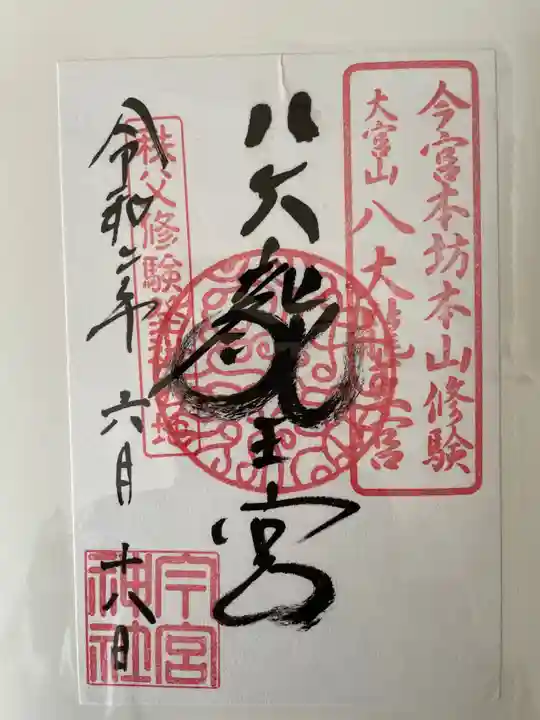 今宮本坊本山修験
大宮山八大龍王宮
八大龍王宮
秩父修験発祥の地
令和二年六月十八日
今宮
神社